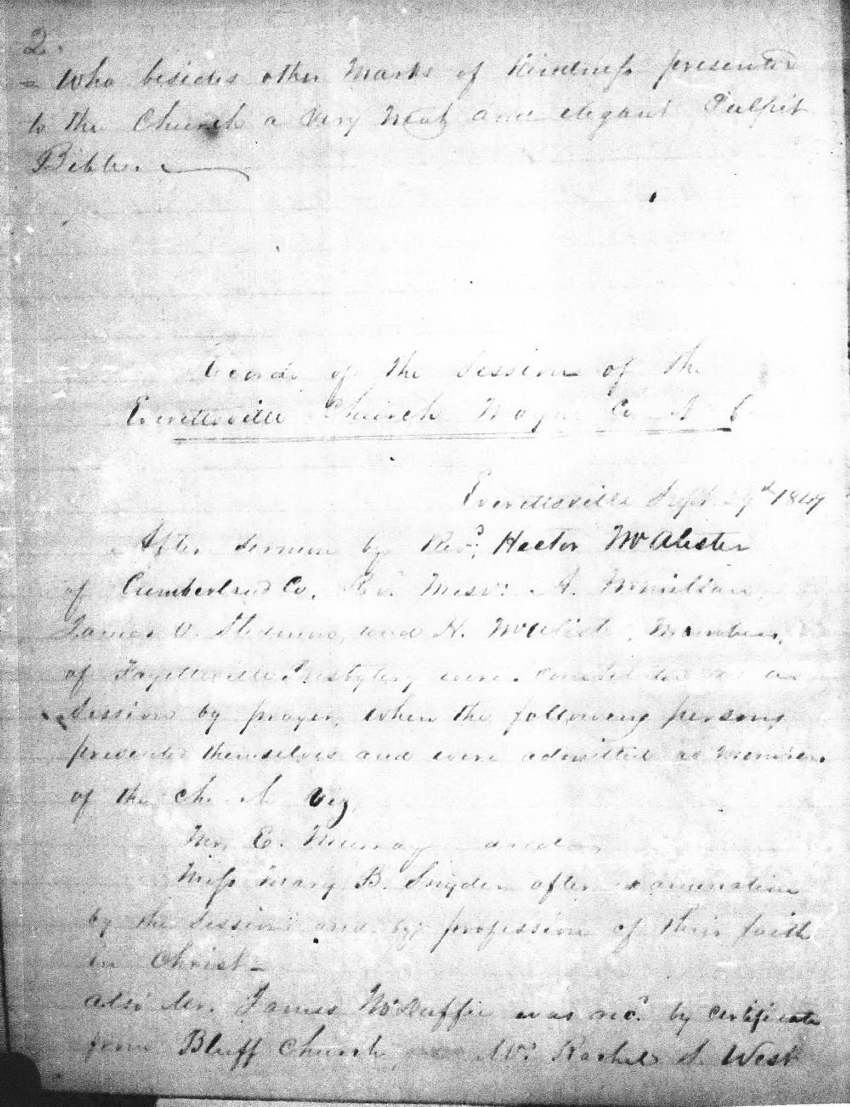 2.
= Who besides other Marks of Kindness presented
to the Church a Very Neat and elegant Pulpit
Bible.
Records of the Session of the
Everettsville Church Wayne Co. N C
Everettsville Sept 29th 1847
After sermon by Revd. Hector McAlister
of Cumberland Co. Rev. Messrs. A. McMillan,
James O. Stedman, and H. McAlister, Members,
of Fayetteville Presbytery were constituted as a
Session by prayer, when the following persons
presented themselves and were admitted as members
of the Viz
E. Murray and
Miss Mary B. Snyder after examination
by the Session and by profession of their faith
in Christ—
also Mr. James McDuffie was recd. by certificate
from Bluff Church, Mrs. Rachel S. West